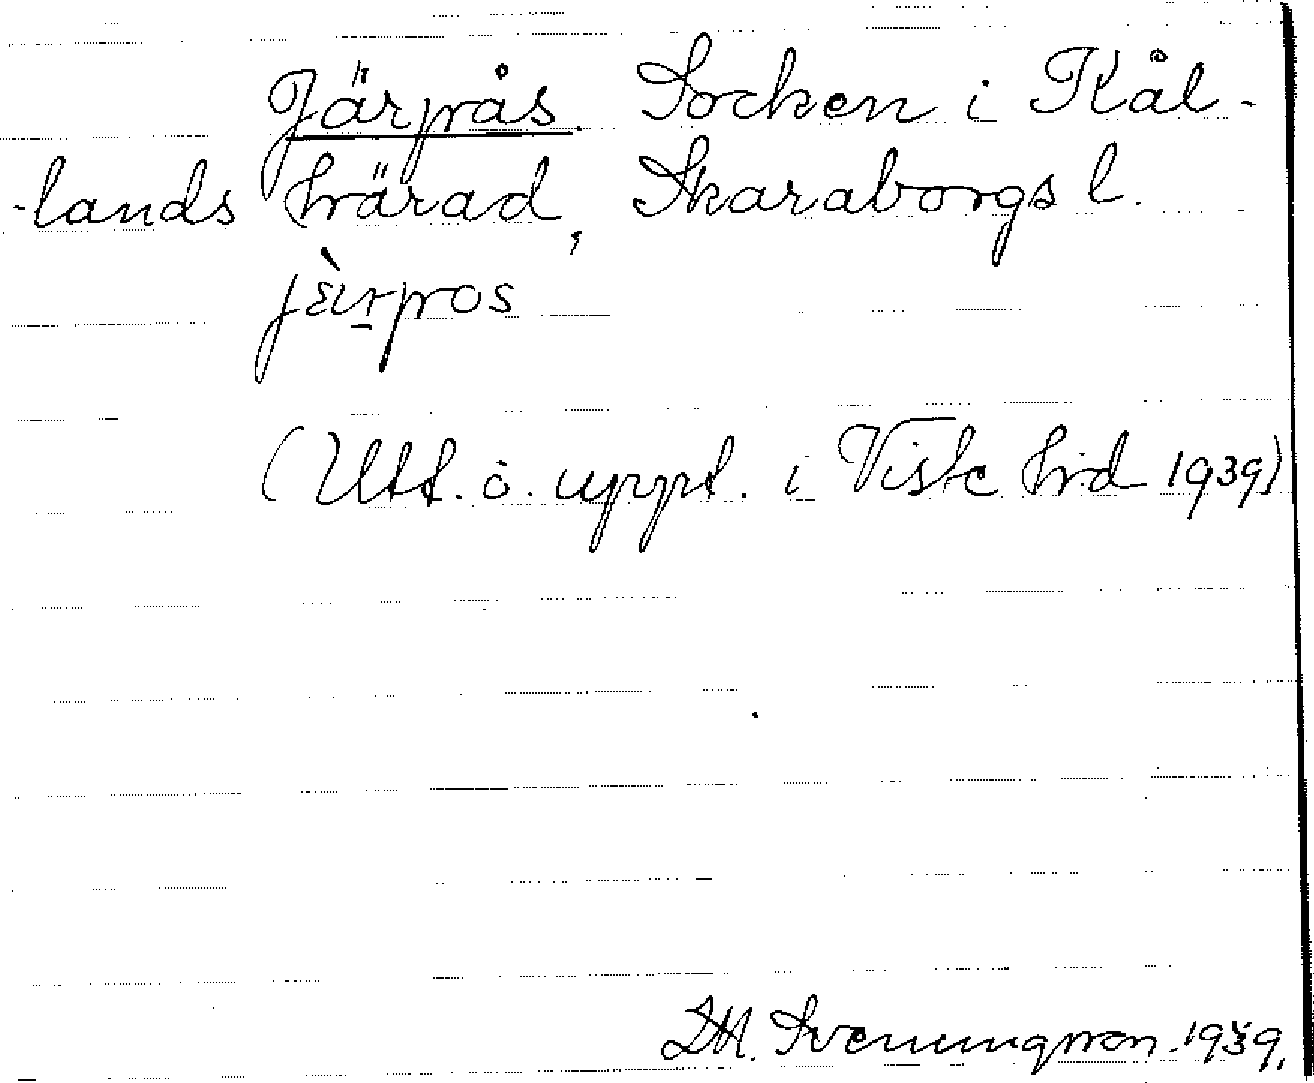 Järpås Socken i Kål-
-lands härad, Skaraborgs l.
jèrpos
(Utt. o. uppt. i Viste hd 1939)
D.M. Svenningsson. 1939.